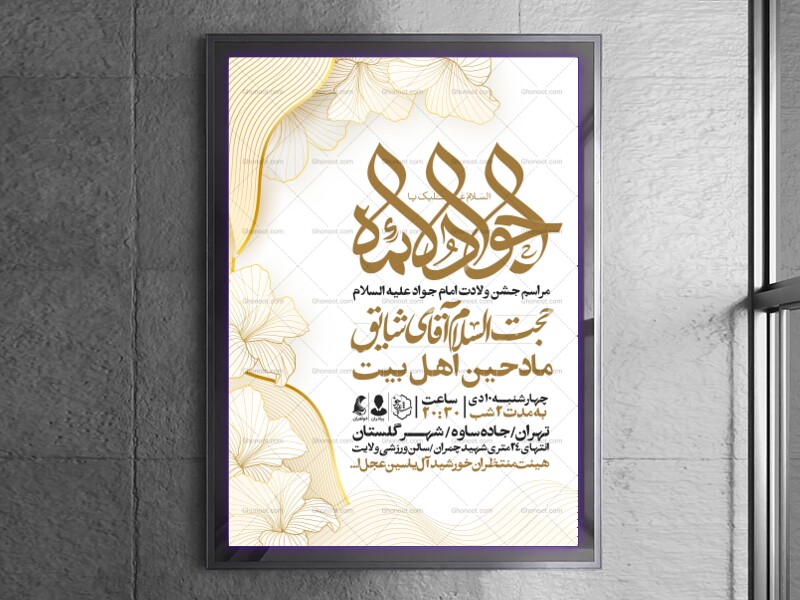 السلام علیک یا
جوادالائمه
مراسم جشن ولادت امام جواد علیه السلام
حجت السلام آقای شایق
مادحین اهل بیت
چهارشنبه ۱۰ دی
به مدت ۲ شب
ساعت
۲۰:۳۰
برادران
خواهران
تهران/جاده ساوه/شهر گلستان
انتهای ۲۴ متری شهید چمران/سالن ورزشی ولایت
هیئت منتظران خورشید آل یاسین عجل ا...
Ghonoot.com